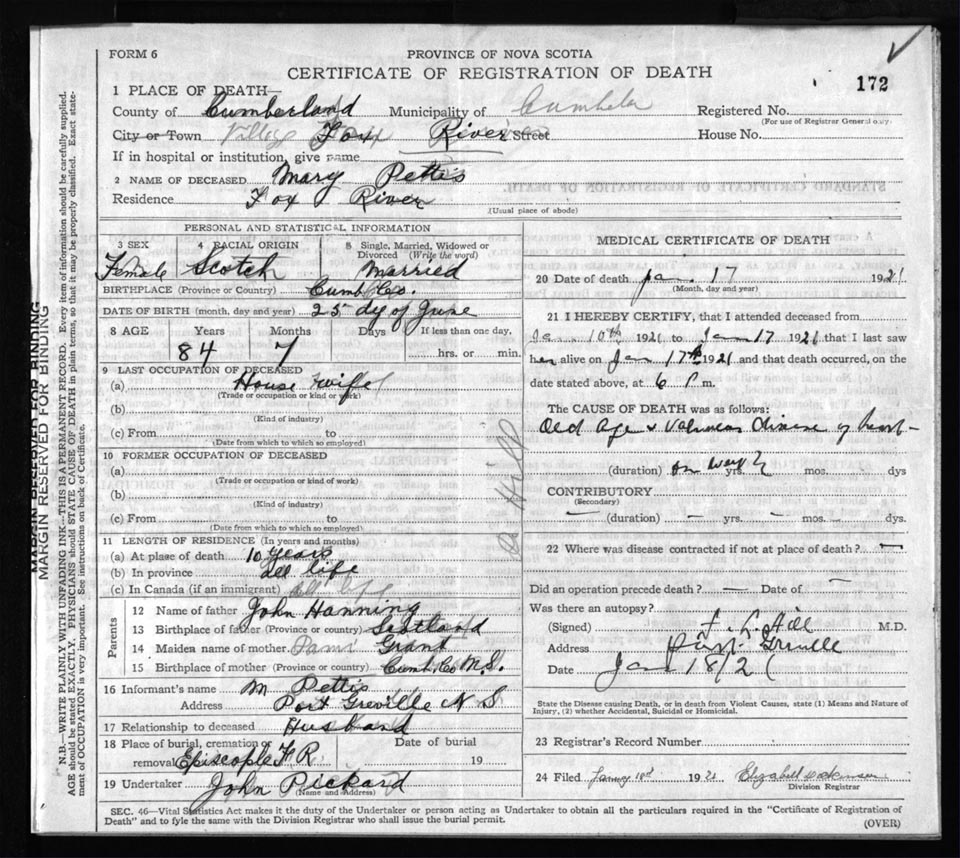 FORM 6
PROVINCE OF NOVA SCOTIA
CERTIFICATE OF REGISTRATION OF DEATH
172
1 PLACE OF DEATH—
County of Cumberland Municipality of Registered No.
(For use of Registrar General only.
City or Town Village Fox River Street House No.
If in hospital or institution, give name
2 NAME OF DECEASED Mary Pettis
Residence Fox River
(Usual place of abode)
PERSONAL AND STATISTICAL INFORMATION
3 SEX 4 RACIAL ORIGIN 5 Single, Married, Widowed or Divorced (Write the word)
Female Scotch Married
BIRTHPLACE (Province or Country) Cumb. Co.
DATE OF BIRTH (month, day and year) 25 dy of June
8 AGE Years Months Days If less than one day,
84 7 hrs. or min.
9 LAST OCCUPATION OF DECEASED
(a) House wife
(Trade or occupation or kind of work)
(b)
(Kind of industry)
(c) From to
(Date from which to which so employed)
10 FORMER OCCUPATION OF DECEASED
(a)
(Trade or occupation or kind of work)
(b)
(Kind of industry)
(c) From to
(Date from which to which so employed)
11 LENGTH OF RESIDENCE (In years and months)
(a) At place of death 10 years
(b) In province all life
(c) In Canada (if an immigrant) all life
Parents
12 Name of father John Hanning
13 Birthplace of father (Province or country) Scotland
14 Maiden name of mother Grant
15 Birthplace of mother (Province or country) Cumb. Co N.S.
16 Informant's name M Pettis
Address Port Greville N S
17 Relationship to deceased Husband
18 Place of burial, cremation or removal Episcople F R Date of burial 19
19 Undertaker John Pickard
(Name and Address)
MEDICAL CERTIFICATE OF DEATH
20 Date of death Jan. 17 1921
(Month, day and year)
21 I HEREBY CERTIFY, that I attended deceased from
Ja 10th 1921 to Jan 17 1921 that I last saw
her alive on Jan 17th 1921 and that death occurred, on the
date stated above, at 6 P.m.
The CAUSE OF DEATH was as follows:
Old Age & Valvular disease of heart
(duration) yrs. mos. dys
CONTRIBUTORY
(Secondary)
— (duration) — yrs. — mos. dys.
22 Where was disease contracted if not at place of death? —
Did an operation precede death? — Date of —
Was there an autopsy?
(Signed) Hill M.D.
Address Port Greville
Date Jan 18/21
State the Disease causing Death, or in death from Violent Causes, state (1) Means and Nature of
Injury, (2) whether Accidental, Suicidal or Homicidal.
23 Registrar's Record Number
24 Filed January 18d 1921 Elizabeth
Division Registrar
SEC. 46—Vital Statistics Act makes it the duty of the Undertaker or person acting as Undertaker to obtain all the particulars required in the "Certificate of Registration of
Death" and to fyle the same with the Division Registrar who shall issue the burial permit. (OVER)
MARGIN RESERVED FOR BINDING
N.B.—WRITE PLAINLY WITH UNFADING INK—THIS IS A PERMANENT RECORD. Every item of information should be carefully supplied.
AGE should be stated EXACTLY. PHYSICIANS should STATE CAUSE OF DEATH in plain terms, so that it may be properly classified. Exact state-
ment of OCCUPATION is very important. See instructions on back of Certificate.